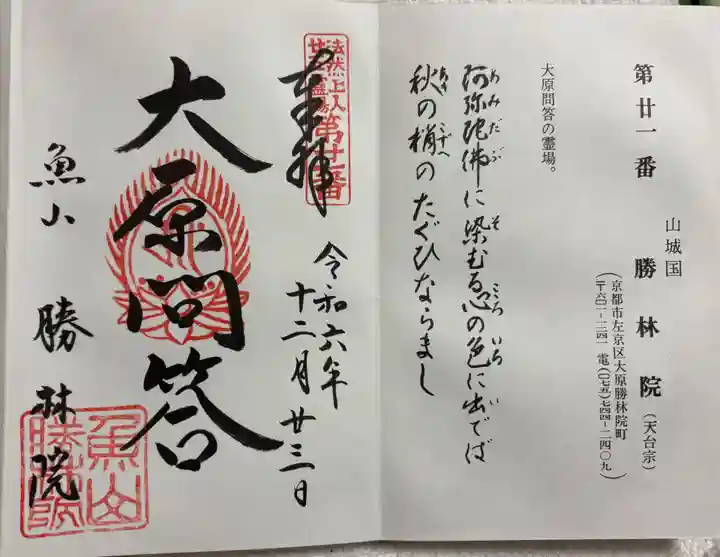 第廿一番
山城国
勝林院(天台宗)
(京都市左京区大原勝林院町
〒六〇一-一二四一 電(〇七五)七四四-二四〇九)
大原問答の霊場。
阿弥陀佛に染むる心の色に出でば
あみだぶ そ こころ いろ い
秋の梢のたぐひならまし
あき こずへ
法然上人
廿五霊場
第廿一番
奉拝
令和六年
十二月廿三日
大原問答
魚山 勝林院
魚山
勝林院